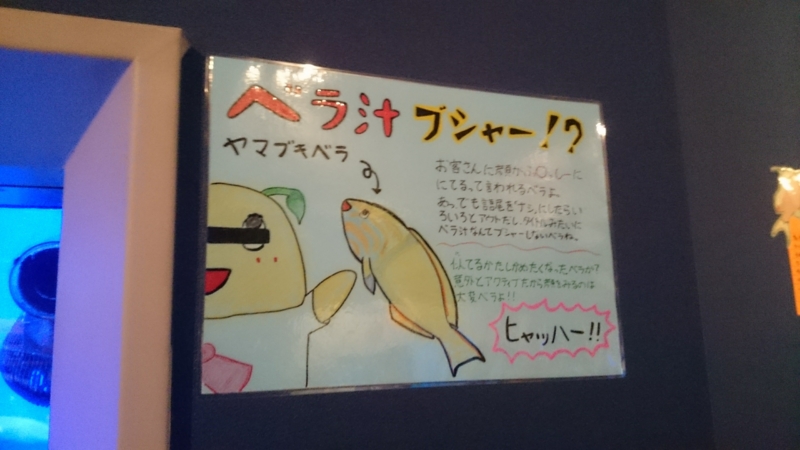 ベラ汁 ブシャー!?
ヤマブキベラ
お客さんに顔がふ〇っしーに
にてるって言われるベラよ。
あっでも語尾を"ナシ"にしたらい
ろいろとアウトだし、タイトルみたいに
ベラ汁なんてブシャーしないベラね。
似てるかたしかめたくなったベラか?
意外とアクティブだから顔をみるのは
大変ベラよ!!
ヒャッハー!!